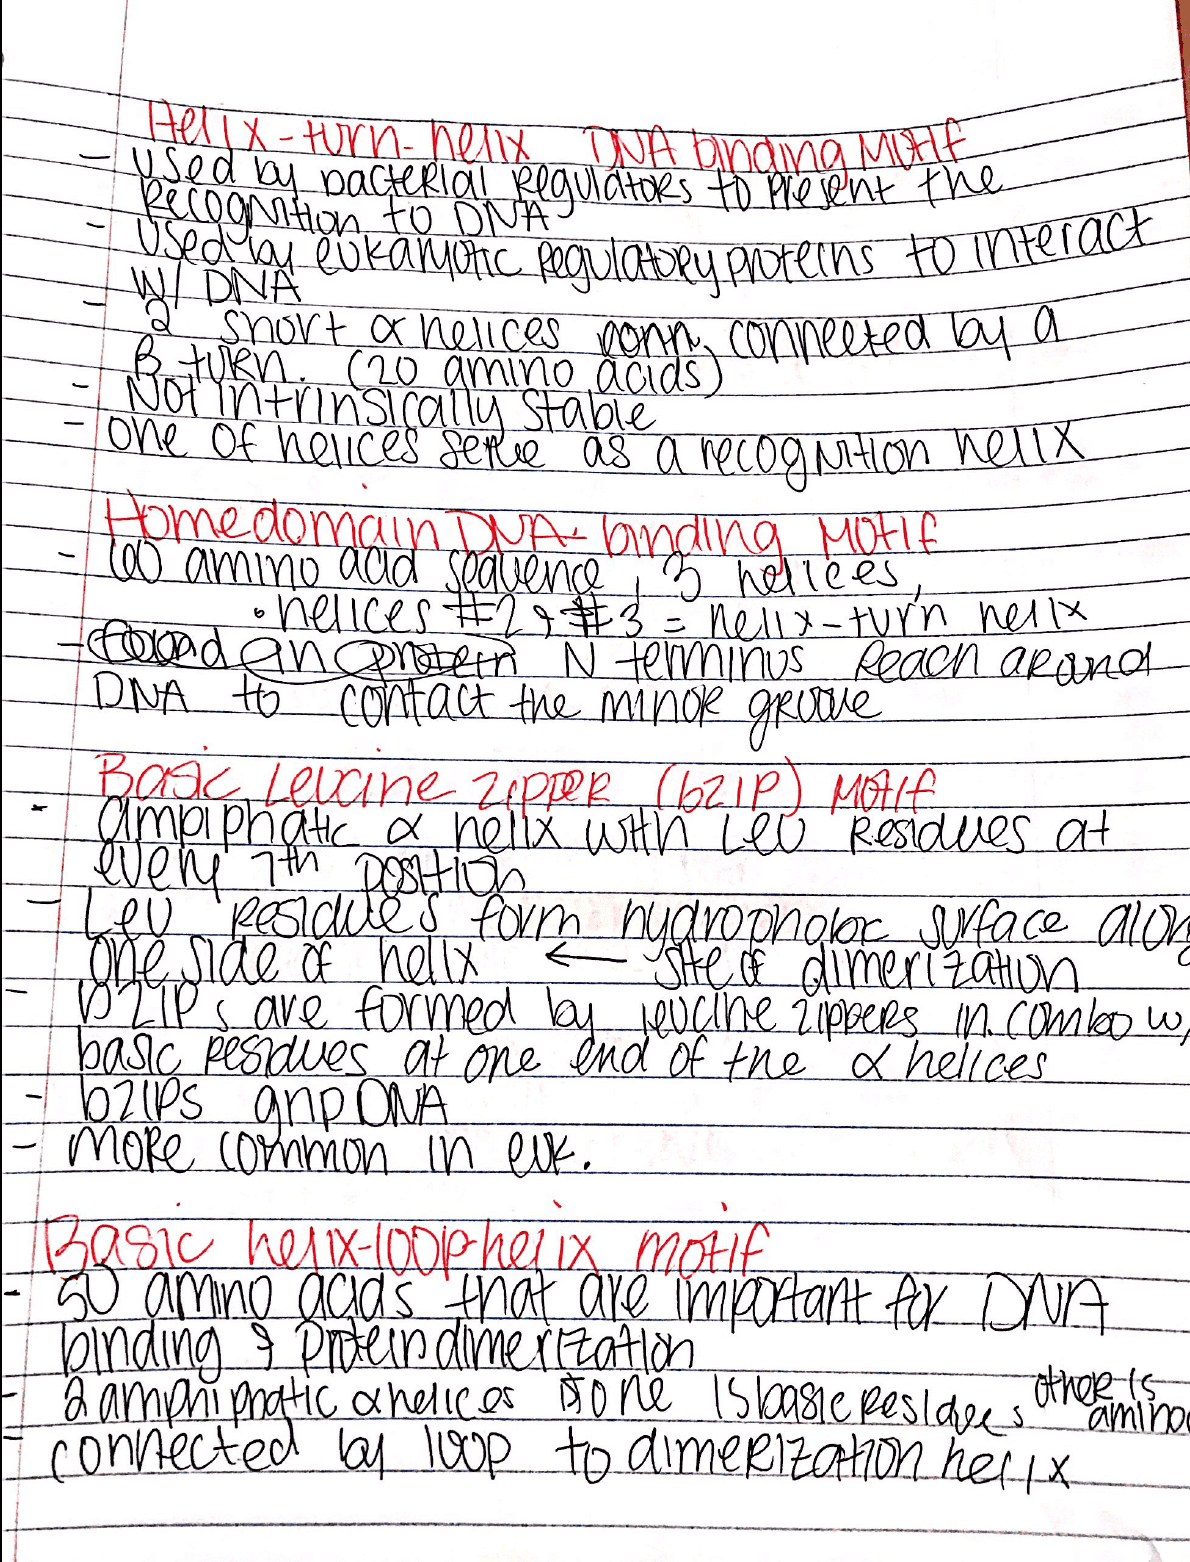 Helix-turn-helix DNA binding Motif
- used by bacterial regulators to present the
recognition to DNA
- Used by eukaryotic regulatory proteins to interact
w/ DNA
- 2 short α helices conn, connected by a
β turn. (20 amino acids)
- Not intrinsically stable
- one of helices serve as a recognition helix
Homedomain DNA-binding Motif
- 60 amino acid sequence, 3 helices,
• helices #2 & #3 = helix-turn helix
- found in protein N terminus Reach around
DNA to contact the minor groove
Basic Leucine Zipper (bZIP) Motif
- ampiphatic α helix with Leu Residues at
every 7th position
- Leu residues form hydrophobic surface along
one side of helix ← site of dimerization
- bZIPs are formed by leucine zippers in combo w/
basic residues at one end of the α helices
- bZIPs grip DNA
- more common in euk.
Basic helix-loop-helix motif
- 50 amino acids that are important for DNA
binding & protein dimerization
- 2 amphiphatic α helices one is basic residues other is
amino
- connected by loop to dimerization helix